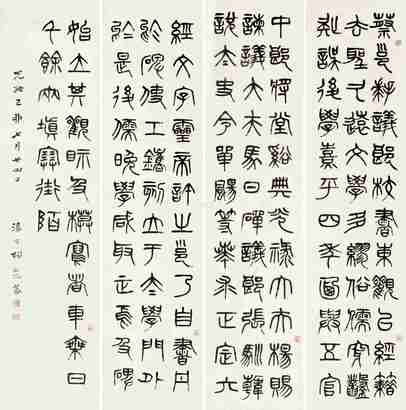 蔡邕拜議郎校書東觀以經籍
去聖久遠文字多繆俗儒穿鑿
疑誤後學熹平四年因與五官
中郎將堂谿典光祿大夫楊賜
諫議大夫馬日磾議郎張馴韓
說太史令單颺等奏求正定六
經文字靈帝許之邕乃自書丹
於碑使工鐫刻立于太學門外
於是後儒晚學咸取正焉及碑
始立其觀視及摹寫者車乘日
千餘兩填塞街陌
光緒己卯七月廿四日